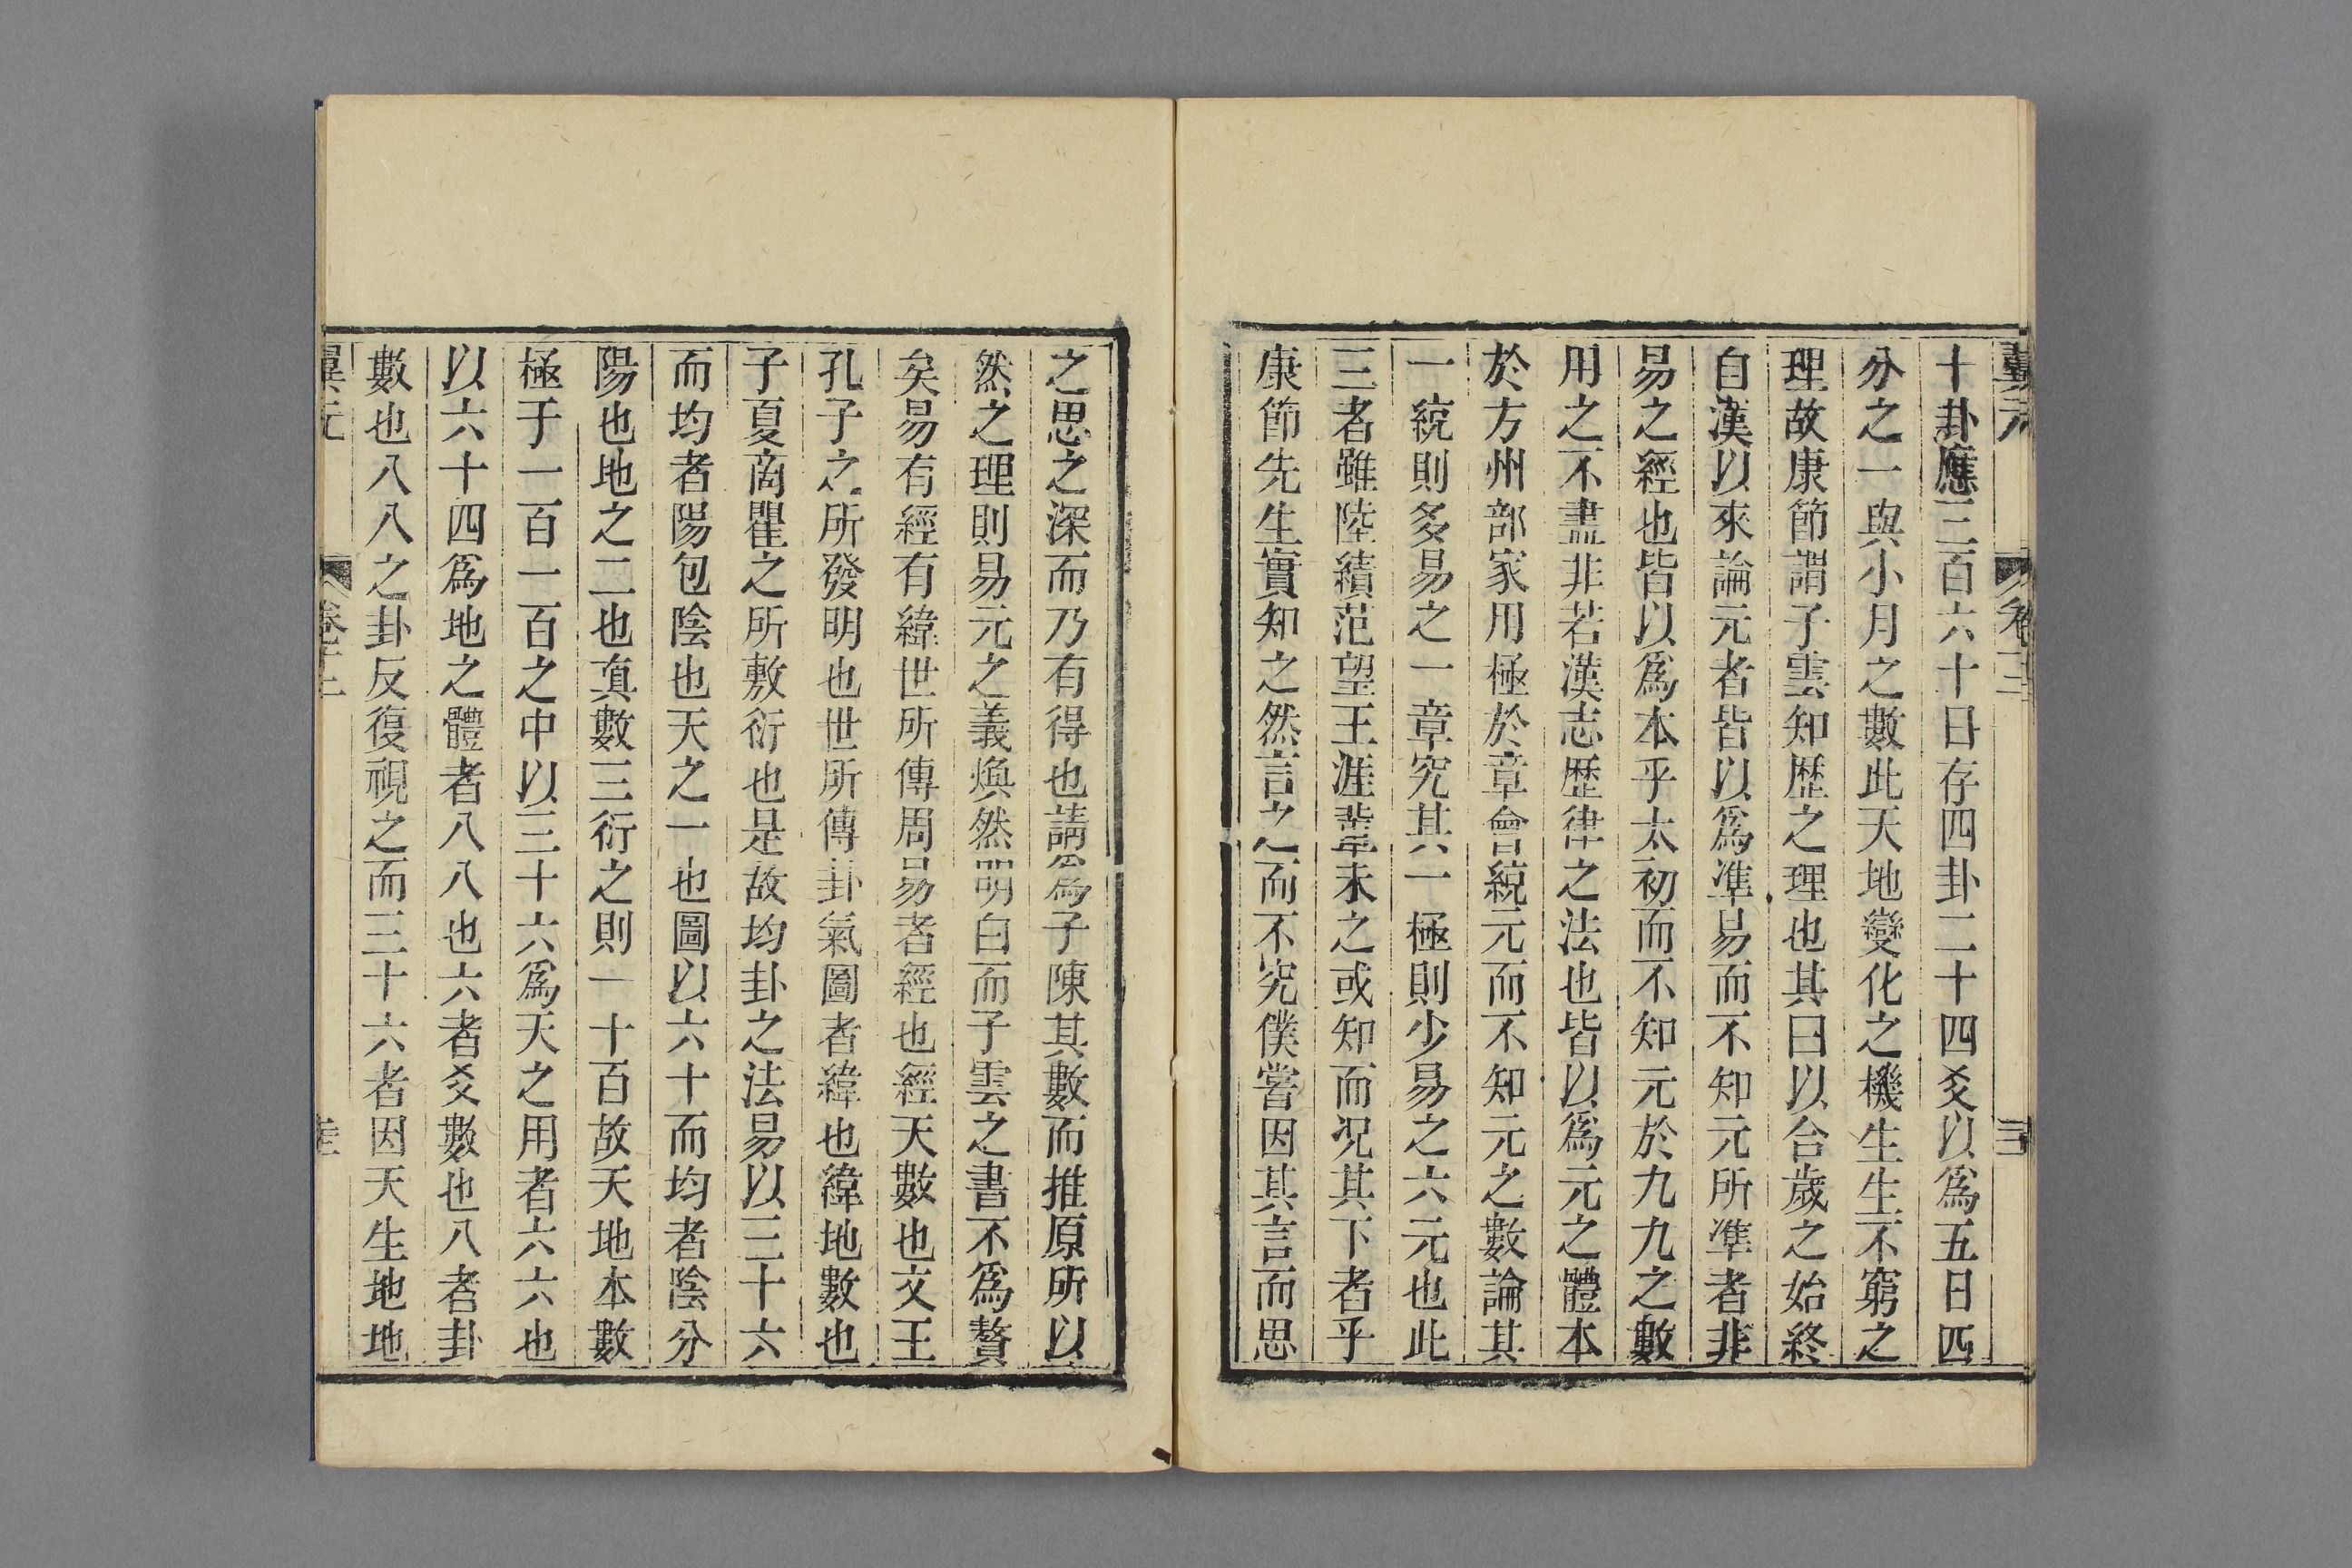 翼元
十卦應三百六十日存四卦二十四爻以爲五日四
分之一與小月之數此天地變化之機生生不窮之
理故康節謂子雲知歷之理也其曰以合歲之始終
自漢以來論元者皆以爲準易而不知元所準者非
易之經也皆以爲本乎太初而不知元於九九之數
用之不盡非若漢志歷律之法也皆以爲元之體本
於方州部家用極於章會統元而不知元之數論其
一統則多易之一章究其一極則少易之六元也此
三者雖陸績范望王涯輩未之或知而況其下者乎
康節先生實知之然言之而不究僕嘗因其言而思
之思之深而乃有得也請爲子陳其數而推原所以
然之理則易元之義煥然明白而子雲之書不爲贅
矣易有經有緯世所傳周易者經也經天數也文王
孔子之所發明也世所傳卦氣圖者緯也緯地數也
子夏商瞿之所敷衍也是故均卦之法易以三十六
而均者陽包陰也天之一也圖以六十而均者陰分
陽也地之二也眞數三衍之則一十百故天地本數
極于一百一百之中以三十六爲天之用者六六也
以六十四爲地之體者八八也六者爻數也八者卦
數也八八之卦反復視之而三十六者因天生地地
翼元